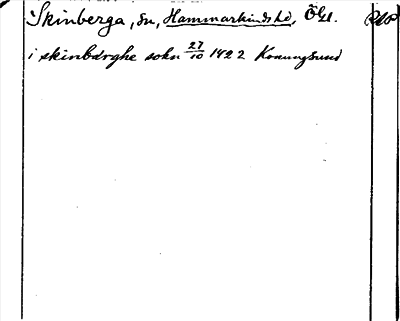 Skinberga, sn, Hammarkinds hd, Ögl. RAP
i skinbärghe sokn 27/10 1422 Konungsund